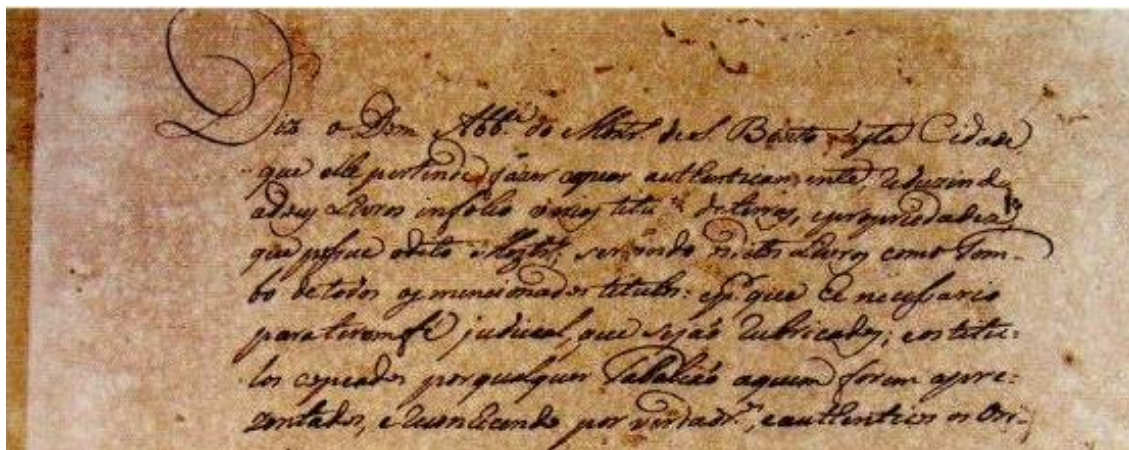 Diz o Dom Abb.e do Mostr.o de S Bento desta Cidade
que elle pertende fazer copiar authenticam,ente, reduzindo
adous Livros infolio varios titu.os de terras, e propriedades,
que possue o dito Mostr.o, servindo os ditos Livros como Tom-
bo de todos os mencionados titulos: e p.r que he necessario
para terem fé judicial, que sejaõ rubricados, e os titu-
los copiados por qualquer Taballiaõ aquem forem apre-
zentados, e reconhecendo por verdadr.os, e authenticos os Ori-